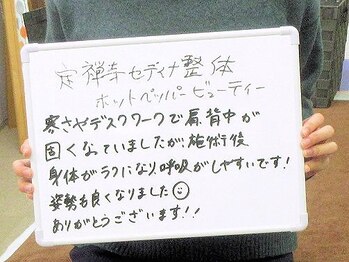 定禅寺セディナ整体
ホットペッパービューティー
寒さやデスクワークで肩、背中が
固くなっていましたが、施術後
身体がラクになり、呼吸がしやすいです!
姿勢も良くなりました☺
ありがとうございます!!